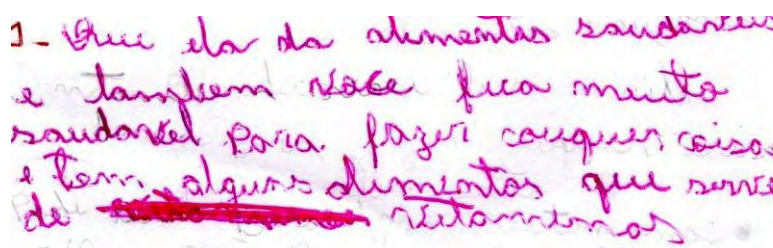 1- Que ela da alimentos saudaveis
e tambem você fica muito
saudavel para fazer cauquer coisa
e tem alguns alimentos que serve
de vitaminas